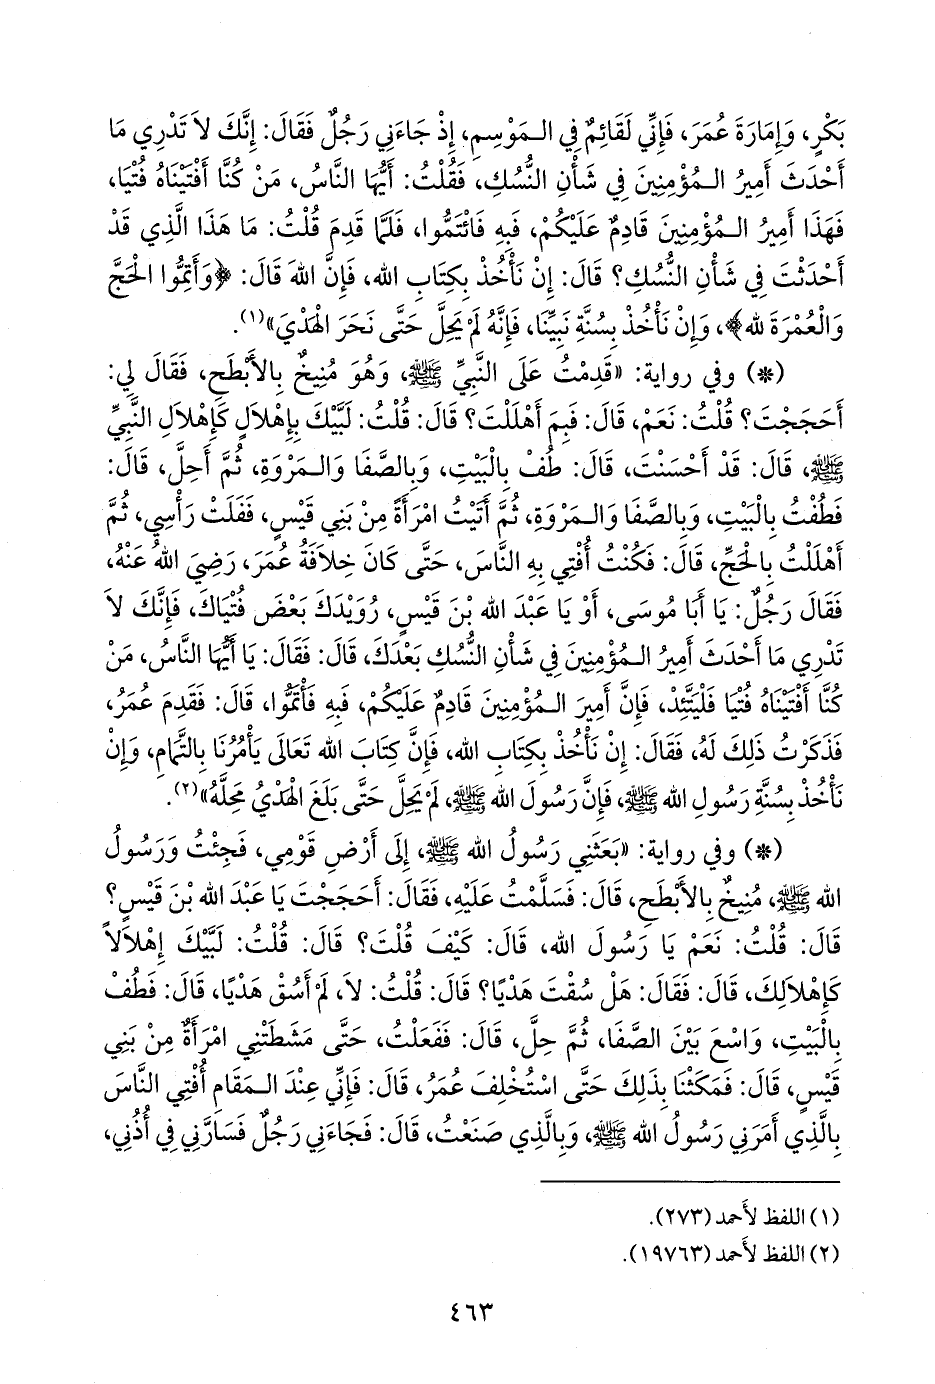 بَكْرٍ، وَإِمَارَةَ عُمَرَ، فَإِنِّي لَقَائِمٌ فِي الـمَوْسِمِ، إِذْ جَاءَنِي رَجُلٌ فَقَالَ: إِنَّكَ لاَ تَدْرِي مَا
أَحْدَثَ أَمِيرُ الـمُؤْمِنِينَ فِي شَأْنِ النُّسُكِ، فَقُلْتُ: أَيُّهَا النَّاسُ، مَنْ كُنَّا أَفْتَيْنَاهُ فُتْيَا،
فَهَذَا أَمِيرُ الـمُؤْمِنِينَ قَادِمٌ عَلَيْكُمْ، فَبِهِ فَائْتَمُّوا، فَلَمَّا قَدِمَ قُلْتُ: مَا هَذَا الَّذِي قَدْ
أَحْدَثْتَ فِي شَأْنِ النُّسُكِ؟ قَالَ: إِنْ نَأْخُذْ بِكِتَابِ الله، فَإِنَّ اللهَ قَالَ: ﴿وَأَتِمُّوا الحَجَّ
وَالْعُمْرَةَ لله﴾، وَإِنْ نَأْخُذْ بِسُنَّةِ نَبِيِّنَا، فَإِنَّهُ لَمْ يَحِلَّ حَتَّى نَحَرَ الهَدْيَ»(١).
(*) وفي رواية: «قَدِمْتُ عَلَى النَّبِيِّ ﷺ، وَهُوَ مُنِيخٌ بِالأَبْطَحِ، فَقَالَ لِي:
أَحَجَجْتَ؟ قُلْتُ: نَعَمْ، قَالَ: فَبِمَ أَهْلَلْتَ؟ قَالَ: قُلْتُ: لَبَّيْكَ بِإِهْلاَلٍ كَإِهْلاَلِ النَّبِيِّ
ﷺ، قَالَ: قَدْ أَحْسَنْتَ، قَالَ: طُفْ بِالْبَيْتِ، وَبِالصَّفَا وَالـمَرْوَةِ، ثُمَّ أَحِلَّ، قَالَ:
فَطُفْتُ بِالْبَيْتِ، وَبِالصَّفَا وَالـمَرْوَةِ، ثُمَّ أَتَيْتُ امْرَأَةً مِنْ بَنِي قَيْسٍ، فَفَلَتْ رَأْسِي، ثُمَّ
أَهْلَلْتُ بِالْحَجِّ، قَالَ: فَكُنْتُ أُفْتِي بِهِ النَّاسَ، حَتَّى كَانَ خِلاَفَةُ عُمَرَ، رَضِيَ اللهُ عَنْهُ،
فَقَالَ رَجُلٌ: يَا أَبَا مُوسَى، أَوْ يَا عَبْدَ الله بْنَ قَيْسٍ، رُوَيْدَكَ بَعْضَ فُتْيَاكَ، فَإِنَّكَ لاَ
تَدْرِي مَا أَحْدَثَ أَمِيرُ الـمُؤْمِنِينَ فِي شَأْنِ النُّسُكِ بَعْدَكَ، قَالَ: فَقَالَ: يَا أَيُّهَا النَّاسُ، مَنْ
كُنَّا أَفْتَيْنَاهُ فُتْيَا فَلْيَتَّئِدْ، فَإِنَّ أَمِيرَ الـمُؤْمِنِينَ قَادِمٌ عَلَيْكُمْ، فَبِهِ فَأْتَمُّوا، قَالَ: فَقَدِمَ عُمَرُ،
فَذَكَرْتُ ذَلِكَ لَهُ، فَقَالَ: إِنْ نَأْخُذْ بِكِتَابِ الله، فَإِنَّ كِتَابَ الله تَعَالَى يَأْمُرُنَا بِالتَّمَامِ، وَإِنْ
نَأْخُذْ بِسُنَّةِ رَسُولِ الله ﷺ، فَإِنَّ رَسُولَ الله ﷺ، لَمْ يَحِلَّ حَتَّى بَلَغَ الهَدْيُ مَحِلَّهُ»(٢).
(*) وفي رواية: «بَعَثَنِي رَسُولُ الله ﷺ، إِلَى أَرْضِ قَوْمِي، فَجِئْتُ وَرَسُولُ
الله ﷺ، مُنِيخٌ بِالأَبْطَحِ، قَالَ: فَسَلَّمْتُ عَلَيْهِ، فَقَالَ: أَحَجَجْتَ يَا عَبْدَ الله بْنَ قَيْسٍ؟
قَالَ: قُلْتُ: نَعَمْ يَا رَسُولَ الله، قَالَ: كَيْفَ قُلْتَ؟ قَالَ: قُلْتُ: لَبَّيْكَ إِهْلاَلاً
كَإِهْلاَلِكَ، قَالَ: فَقَالَ: هَلْ سُقْتَ هَدْيًا؟ قَالَ: قُلْتُ: لاَ، لَمْ أَسُقْ هَدْيًا، قَالَ: فَطُفْ
بِالْبَيْتِ، وَاسْعَ بَيْنَ الصَّفَا، ثُمَّ حِلَّ، قَالَ: فَفَعَلْتُ، حَتَّى مَشَطَتْنِي امْرَأَةٌ مِنْ بَنِي
قَيْسٍ، قَالَ: فَمَكَثْنَا بِذَلِكَ حَتَّى اسْتُخْلِفَ عُمَرُ، قَالَ: فَإِنِّي عِنْدَ الـمَقَامِ أُفْتِي النَّاسَ
بِالَّذِي أَمَرَنِي رَسُولُ الله ﷺ، وَبِالَّذِي صَنَعْتُ، قَالَ: فَجَاءَنِي رَجُلٌ فَسَارَّنِي فِي أُذُنِي،
(١) اللفظ لأَحمد (٢٧٣).
(٢) اللفظ لأَحمد (١٩٧٦٣).
٤٦٣